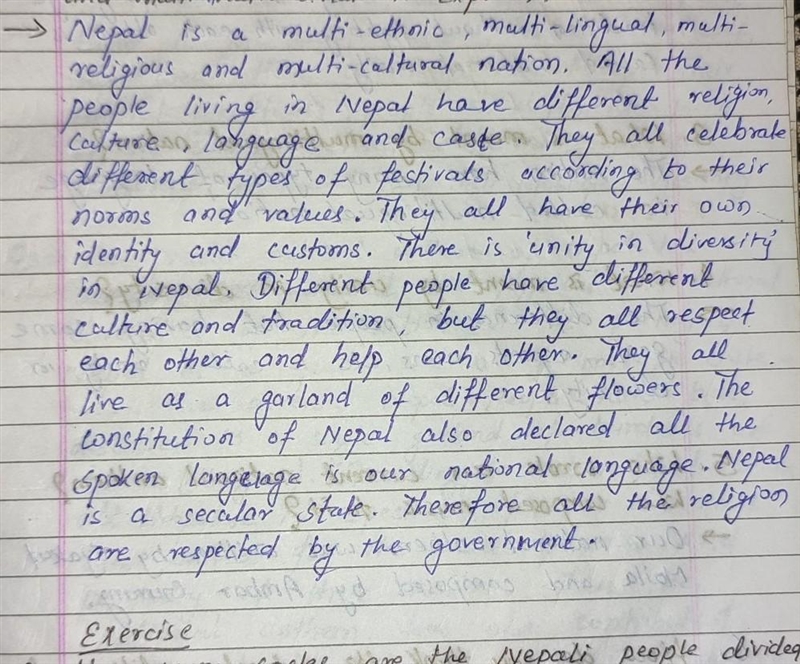 → Nepal is a multi-ethnic, multi-lingual, multi-
religious and multi-cultural nation. All the
people living in Nepal have different religion,
culture, language and caste. They all celebrate
different types of festivals according to their
norms and values. They all have their own
identity and customs. There is 'unity in diversity'
in Nepal. Different people have different
culture and tradition, but they all respect
each other and help each other. They all
live as a garland of different flowers. The
constitution of Nepal also declared all the
spoken language is our national language. Nepal
is a secular state. Therefore all the religion
are respected by the government.
Exercise
are the Nepali people divided